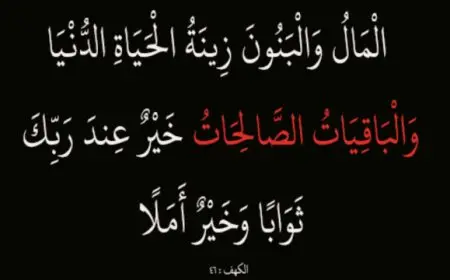 الْمَالُ وَالْبَنُونَ زِينَةُ الْحَيَاةِ الدُّنْيَا
وَالْبَاقِيَاتُ الصَّالِحَاتُ خَيْرٌ عِندَ رَبِّكَ
ثَوَابًا وَخَيْرٌ أَمَلًا
الكهف : ٤٦